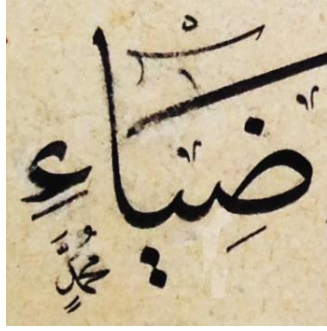 ضِيَاءِ
مُحَمَّدٍ